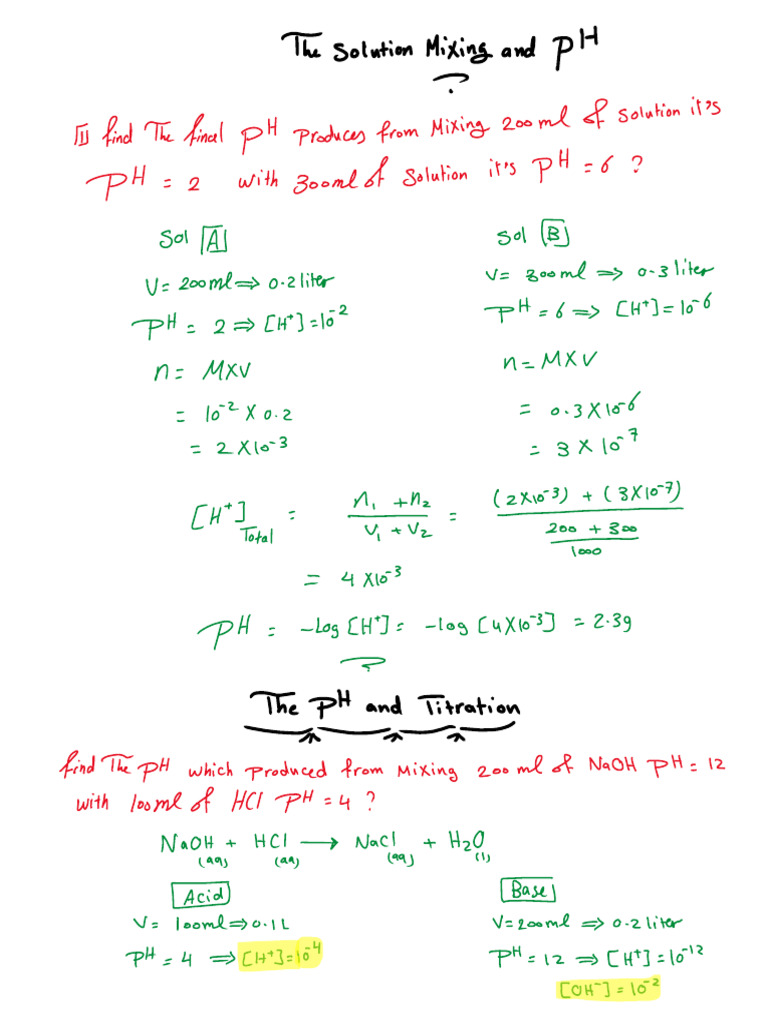 The Solution Mixing and pH
?
[1] find The fincel pH produces from Mixing 200ml of solution it's
pH = 2 with 300ml of solution it's pH = 6 ?
Sol [A]
Sol [B]
V= 200ml ⇒ 0.2 liter
V= 300ml ⇒ 0.3 liter
pH = 2 ⇒ [H⁺]=10⁻²
pH = 6 ⇒ [H⁺]=10⁻⁶
n = M×V
n = M×V
= 10⁻² × 0.2
= 0.3×10⁻⁶
= 2×10⁻³
= 3 × 10⁻⁷
[H⁺]Total = (n₁ + n₂)/(V₁ + V₂) = ((2×10⁻³) + (3×10⁻⁷))/((200 + 300)/1000)
= 4×10⁻³
pH = -Log [H⁺] = -log [4×10⁻³] = 2.39
?
The pH and Titration
find The pH which produced from Mixing 200 ml of NaOH pH = 12
with 100ml of HCl pH = 4 ?
NaOH(aq) + HCl(aq) ⟶ NaCl(aq) + H₂O(l)
Acid
Base
V= 100ml ⇒ 0.1L
V=200ml ⇒ 0.2 liter
pH = 4 ⇒ [H⁺]=10⁻⁴
pH = 12 ⇒ [H⁺]=10⁻¹²
[OH⁻] = 10⁻²